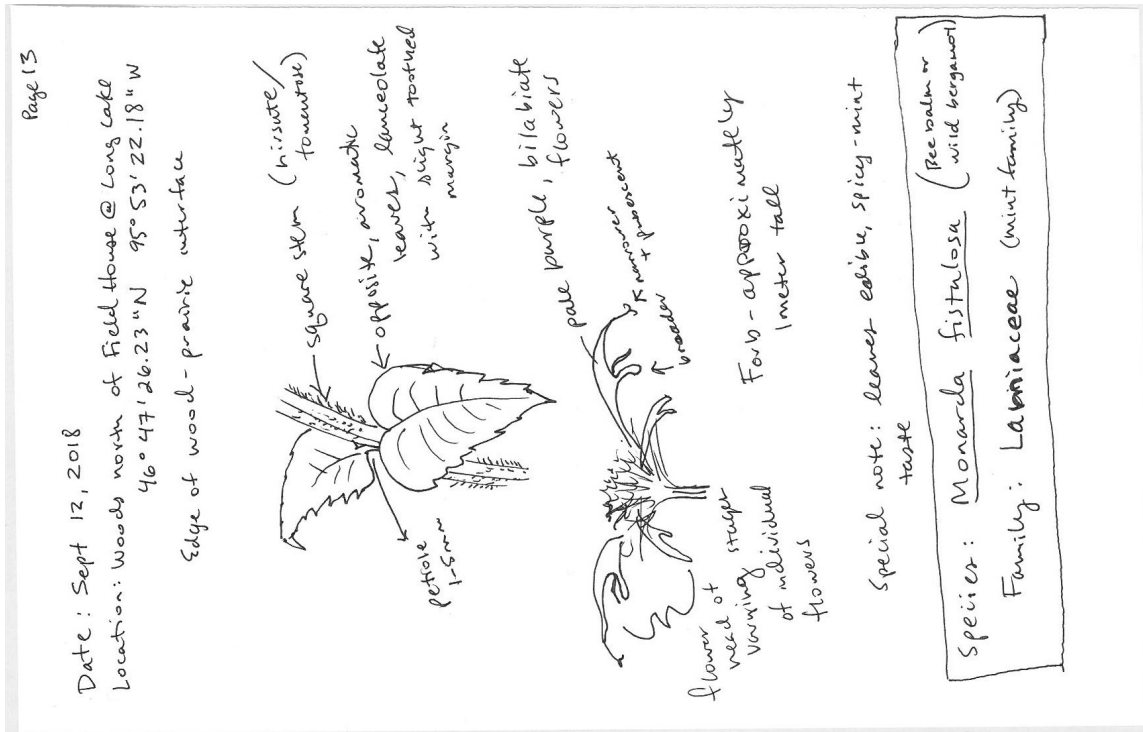 Page 13
Date: Sept 12, 2018
Location: Woods north of Field House @ Long Lake
46° 47' 26.23" N 95° 53' 22.18" W
Edge of wood-prairie interface
square stem (hirsute/
tomentose)
opposite, aromatic
leaves, lanceolate
with slight toothed
margin
petiole
1-5mm
pale purple, bilabiate
flowers
narrower
+ pubescent
broader
flower
head of
varying stages
of individual
flowers
Forb - approximately
1 meter tall
Special note: leaves edible, spicy-mint
taste
Species: Monarda fistulosa (Bee balm or
wild bergamot)
Family: Labmiaceae (mint family)